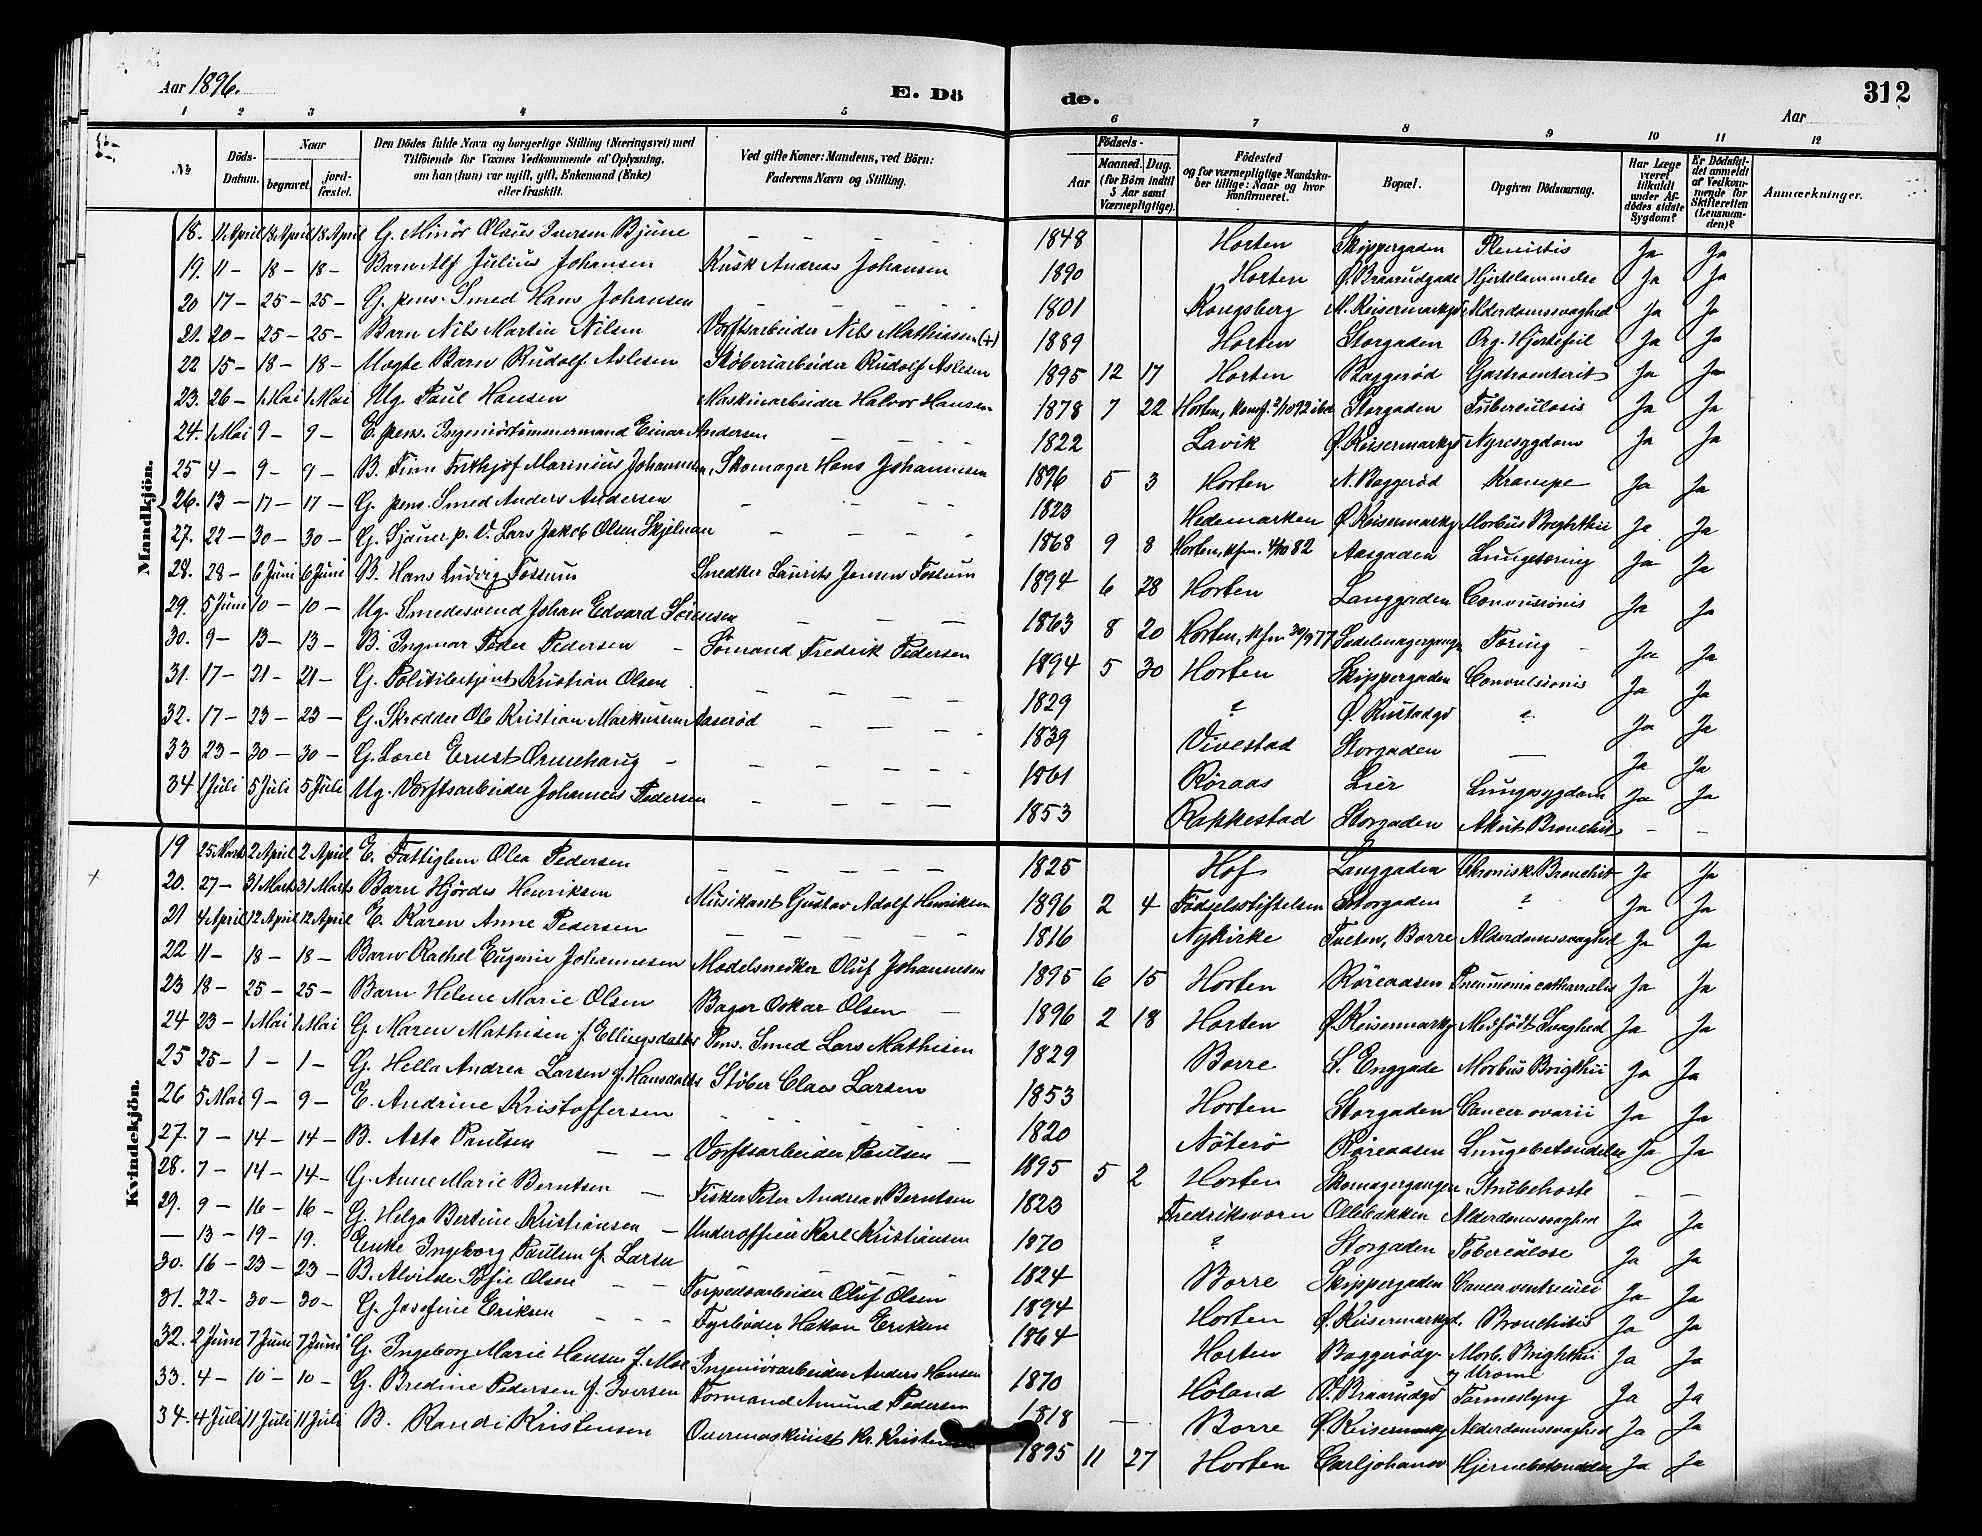 Aar 1896.
E. Dö
de.
Aar
312
1 2 3 4 5 6 7 8 9 10 11 12
No
Döds-Datum.
Naar
begravet.
jord-fæstet.
Den Dödes fulde Navn og borgerlige Stilling (Næringsvei) med Tilföiende for Voxnes Vedkommende af Oplysning, om han (hun) var ugift, gift, Enkemand (Enke) eller fraskilt.
Ved gifte Koner: Mandens, ved Börn: Faderens Navn og Stilling.
Födsels-
Aar
Maaned. Dag.
(for Börn indtil 5 Aar samt Værnepligtige).
Födested og for værnepligtige Mandskaber tillige: Naar og hvor konfirmeret.
Bopæl.
Opgiven Dödsaarsag.
Har Læge været tilkaldt under Afdödes sidste Sygdom?
Er Dödsfaldet anmeldt af Vedkommende for Skifteretten (Lensmanden)?
Anmærkninger.
Mandkjön.
18. 11 April 18 April 18 April G. Minör Olaus Iversen Bjune — — — 1848 Horten Skippergaden Pleuritis Ja Ja
19. 11 — 18 — 18 — Barn Alf Julius Johansen Kusk Andreas Johansen 1890 Horten Ø. Braarudgade Hjertelammelse Ja Ja
20 17 — 25 — 25 — G. pens. Smed Hans Johansen — — — 1801 Kongsberg N. Keisermarkgd Alderdomssvaghed Ja Ja
21. 20 — 25 — 25 — Barn Nils Martin Nilsen Værftsarbeider Nils Mathiassen (+) 1889 Horten Storgaden Org. Hjertefeil Ja Ja
22 15 — 18 — 18 — Uægte Barn Rudolf Aslesen Støberiarbeider Rudolf Aslesen 1895 12 17 Horten Baggerød Gastroenterit Ja Ja
23. 26 — 1 Mai 1 Mai Ug. Paul Hansen Maskinarbeider Halvor Hansen 1878 7 22 Horten, konf. 2/10 92 ibd Storgaden Tuberculosis Ja Ja
24. 1 Mai 9 — 9 — E. pens. Ingeniørtømmermand Einar Andersen — — — 1822 Lavik Ø. Keisermarkgd Nyresygdom Ja Ja
25 4 — 9 — 9 — B. Finn Frithjof Marinius Johannesen, Skomager Hans Johannesen 1896 5 3 Horten N. Baggerød Krampe Ja Ja
26. 13 — 17 — 17 — G. pens. Smed Anders Andersen — — — 1823 Hedemarken Ø. Keisermarkg. Morbus Brighthii Ja Ja
27. 22 — 30 — 30 — G. Gjauer p. V. Lars Jakob Olsen Skjelnan — — — 1868 9 8 Horten, kfm. 4/10 82 Aasgaden Lungetæring Ja Ja
28. 28 — 6 Juni 6 Juni B. Hans Ludvig Fossum Snedker Laurits Jensen Fossum 1894 6 28 Horten Langgaden Convulsionis Ja Ja
29. 5 Juni 10 — 10 — Ug. Smedesvend Johan Edvard Sørensen — — — 1863 8 20 Horten, kfm 30/9 77 Sadelmagergangen Tæring Ja Ja
30. 9 — 13 — 13 — B. Ingmar Peder Pedersen — Sømand Fredrik Pedersen 1894 5 30 Horten Skippergaden Convulsionis Ja Ja
31. 17 — 21 — 21 — G. Politibetjent Kristian Olsen — — — 1829 ? Ø. Rustadgd ? Ja Ja
32. 17 — 23 — 23 — G. Skrædder Ole Kristian Markussen Aaserød — — — 1839 Vivestad Storgaden — Ja Ja
33 23 — 30 — 30 — G. Lærer Ernst Ormehaug — — — — 1861 Røraas Lier Lungesygdom Ja Ja
34 1 Juli 5 Juli 5 Juli Ug. Værftsarbeider Johannes Pedersen — — — 1853 Rakkestad Storgaden Akut Bronchit — —
Kvindekjön.
19 25 Marts 2 April 2 April E. Fattiglem Olea Pedersen — — — 1825 Hof Langgaden Chronisk Bronchit Ja Ja
× 20. 27 — 31 Marts 31 Marts Barn Hjørdis Henriksen Musikant Gustav Adolf Henriksen 1896 2 4 Fødselsstiftelsen Storgaden ? Ja Ja
21 4 April 12 April 12 April E. Karen Anne Pedersen — — — 1816 Nykirke Tveten, Borre Alderdomssvaghed Ja Ja
22 11 — 18 — 18 — Barn Rachel Eugenie Johannesen Modelsnedker Oluf Johannesen 1895 6 15 Horten Røreaasen Pneumonia catharralis Ja Ja
23 18 — 25 — 25 — Barn Helene Marie Olsen Bager Oskar Olsen — 1896 2 18 Horten Ø. Keisermarkg. Medfödt Svaghed Ja Ja
24 23 — 1 Mai 1 Mai G. Maren Mathisen f. Ellingsdatter Pens. Smed Lars Mathisen 1829 Borre S. Enggade Morbus Brigthii Ja Ja
25 25 — 1 — 1 — G. Hella Andrea Larsen f. Hansdatter Støber Claus Larsen 1853 Horten Storgaden Cancer ovarii Ja Ja
26 5 Mai 9 — 9 — E. Andrine Kristoffersen — — — 1820 Nøterø Røreaasen Lungebetændelse Ja Ja
27. 7 — 14 — 14 — B. Asta Paulsen — — Værftsarbeider Paulsen — 1895 5 2 Horten Skomagergangen Strubehoste — —
28. 7 — 14 — 14 — G. Anne Marie Berntsen — Fisker Peter Andreas Berntsen 1823 Fredriksværn Ollebakken Alderdomssvaghed Ja Ja
29. 9 — 16 — 16 — G. Helga Bertine Kristiansen — Underofficer Karl Kristiansen 1870 ? Storgaden Tuberculose Ja Ja
— 13 — 19 — 19. Enke Ingeborg Paulsen f. Larsen — — — 1824 Borre Skippergaden Cancer ventriculi Ja Ja
30. 16 — 23 — 23 — B. Alvilde Sofie Olsen — — Torpedoarbeider Oluf Olsen 1894 Horten Ø. Keisermarkgd. Bronchitis Ja Ja
31. 22 — 30 — 30 — G. Josefine Eriksen — — — Fyrbøder Hakon Eriksen 1864 Horten Baggerødg. Morb. Brighthii og Uræmi Ja Ja
32. 2 Juni 7 Juni 7 Juni G. Ingeborg Marie Hansen f. Moe Ingeniørarbeider Anders Hansen 1870 Høland V. Braarudgd Tarmeslyng Ja Ja
33. 4 — 10 — 10 — G. Bredine Pedersen f. Iversen Formand Amund Pedersen 1818 — Borre Ø. Keisermarkg Alderdomssvaghed Ja Ja
34. 4 Juli 11 Juli 11 Juli B. Randi Kristensen Overmaskinist Kr. Kristensen 1895 11 27 Horten Carljohansv Hjernebetændelse Ja Ja